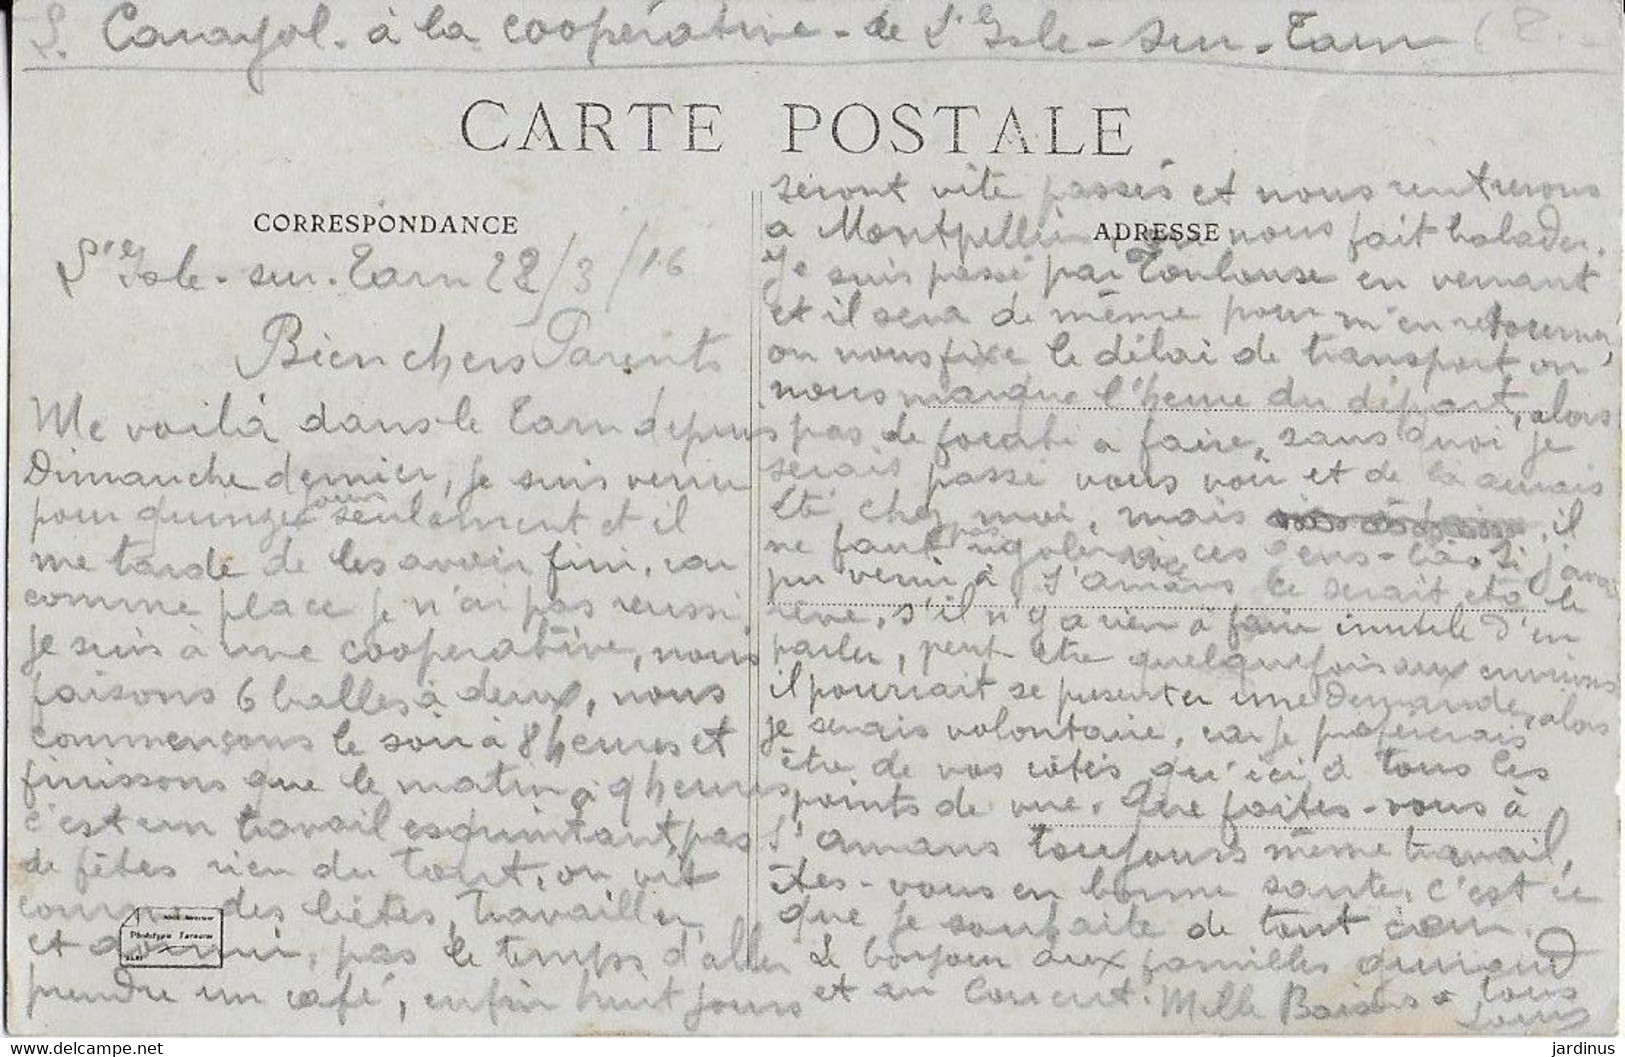 L. Carayol. à la coopérative - de L'Isle - sur - Tarn
CARTE POSTALE
CORRESPONDANCE
L'Isle - sur - Tarn 22/3/16
Bien chers Parents
Me voilà dans le Tarn depuis
Dimanche dernier, je suis venu
pour quinze jours seulement et il
me tarde de les avoir fini, car
comme place je n'ai pas reussi,
je suis à une cooperative, nous
faisons 6 balles à deux, nous
commençons le soir à 8 heures et
finissons que le matin à 9 heures
c'est un travail esquintant, pas
de fêtes rien du tout, on vit
comme des bêtes, travailler
et dormir, pas le temps d'aller
prendre un café, enfin huit jours
ADRESSE
seront vite passés et nous rentrerons
a Montpellier nous fait balader.
Je suis passé par Toulouse en venant
et il sera de même pour m'en retourner,
on nous fixe le délai de transport on
nous marque l'heure du départ, alors
pas de a faire, sans quoi je
serais passé vous voir et de la aurais
été chez moi, mais il
ne faut pas rigoler avec ces gens-là. Si j'avais
pu venir à S'amans ce serait été le
reve, s'il n'y a rien à faire inutile d'en
parler, peut etre quelquefois aux environs
il pourrait se presenter une demande, alors
je serais volontaire, car je prefererais
être de vos côtés qu'ici à tous les
points de vue. Que faites-vous à
S'amans toujours même travail,
êtes-vous en bonne sante, c'est ce
que je souhaite de tout cœur.
Le bonjour aux familles
et au Mille Baisers a tous
Louis
Phototypie Tarnaise
jardinus